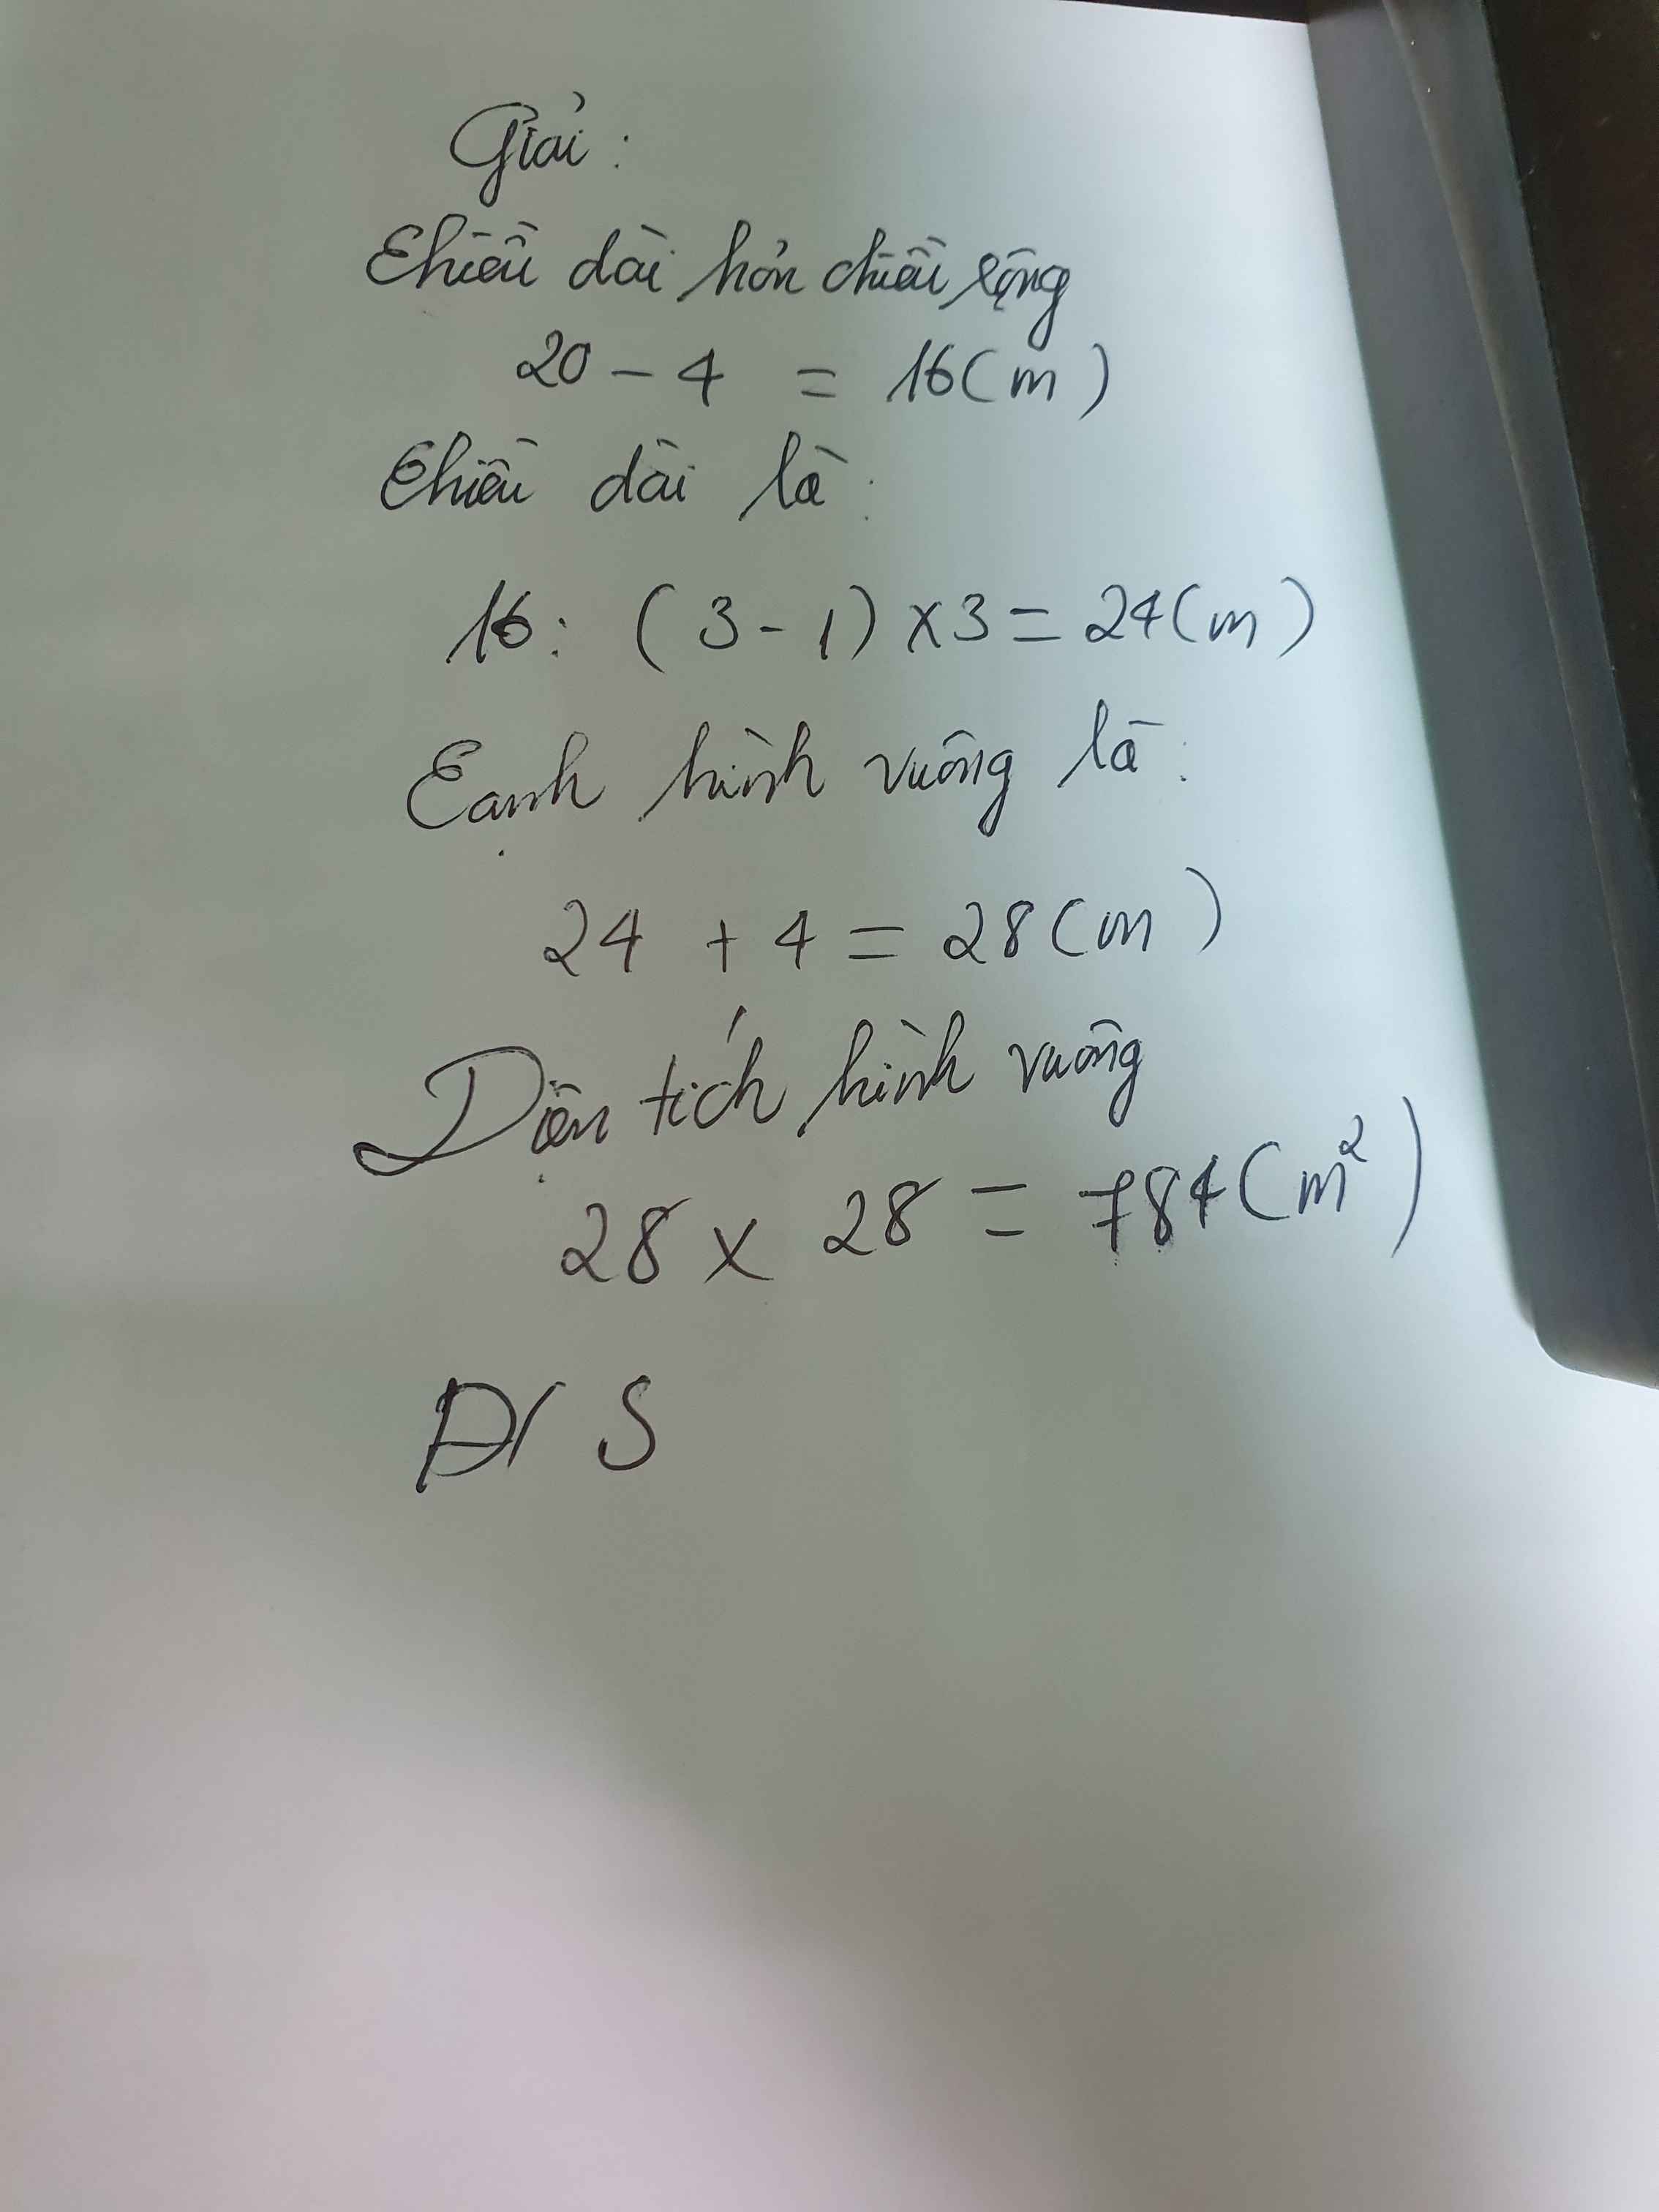 Giải:
Chiều dài hơn chiều rộng
20 - 4 = 16 (m)
Chiều dài là:
16 : (3 - 1) x 3 = 24 (m)
Cạnh hình vuông là:
24 + 4 = 28 (m)
Diện tích hình vuông
28 x 28 = 784 (m²)
Đ/S